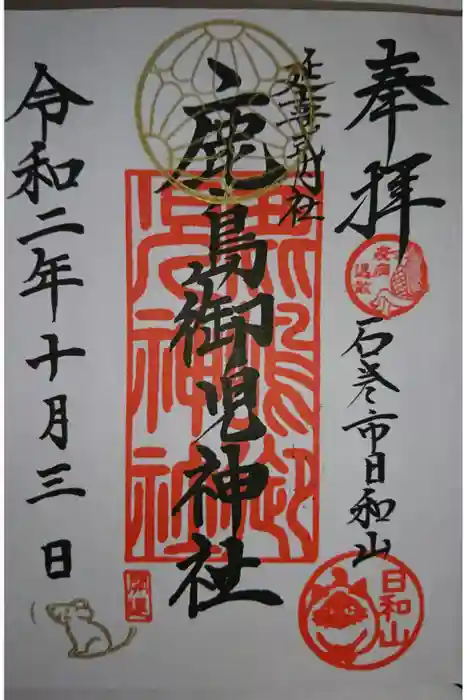 奉拝
石巻市日和山
日和山
延喜式内社
鹿島御児神社
鹿島御児神社
令和二年十月三日